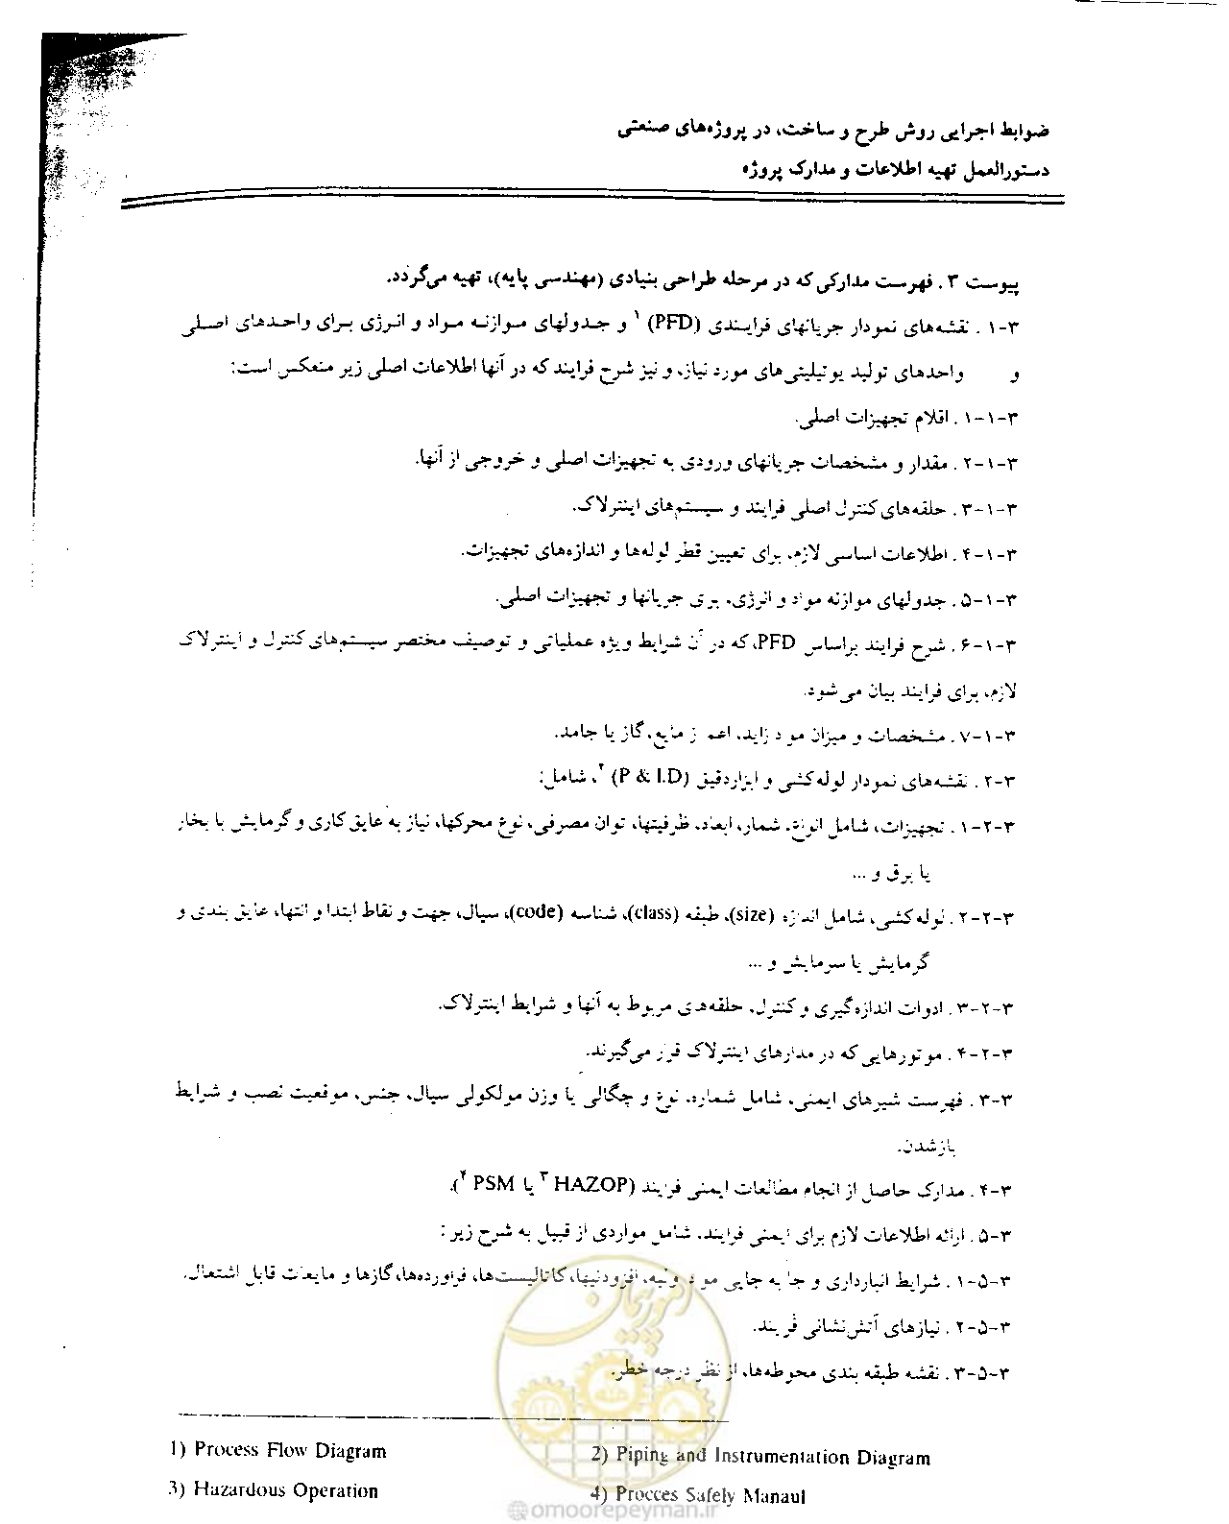 ضوابط اجرایی روش طرح و ساخت، در پروژه‌های صنعتی
دستورالعمل تهیه اطلاعات و مدارک پروژه
پیوست ۳ . فهرست مدارکی که در مرحله طراحی بنیادی (مهندسی پایه)، تهیه می‌گردد.
۳-۱ . نقشه‌های نمودار جریانهای فرایندی (PFD) ۱ و جدولهای موازنه مواد و انرژی برای واحدهای اصلی
و واحدهای تولید یوتیلیتی‌های مورد نیاز، و نیز شرح فرایند که در آنها اطلاعات اصلی زیر منعکس است:
۳-۱-۱ . اقلام تجهیزات اصلی.
۳-۱-۲ . مقدار و مشخصات جریانهای ورودی به تجهیزات اصلی و خروجی از آنها.
۳-۱-۳ . حلقه‌های کنترل اصلی فرایند و سیستم‌های اینترلاک.
۳-۱-۴ . اطلاعات اساسی لازم، برای تعیین قطر لوله‌ها و اندازه‌های تجهیزات.
۳-۱-۵ . جدولهای موازنه مواد و انرژی، برای جریانها و تجهیزات اصلی.
۳-۱-۶ . شرح فرایند براساس PFD، که در آن شرایط ویژه عملیاتی و توصیف مختصر سیستم‌های کنترل و اینترلاک
لازم، برای فرایند بیان می‌شود.
۳-۱-۷ . مشخصات و میزان مواد زاید، اعم از مایع، گاز یا جامد.
۳-۲ . نقشه‌های نمودار لوله‌کشی و ابزاردقیق (P & I.D) ۲، شامل:
۳-۲-۱ . تجهیزات، شامل انواع، شمار، ابعاد، ظرفیتها، توان مصرفی، نوع محرکها، نیاز به عایق‌کاری و گرمایش با بخار
یا برق و ...
۳-۲-۲ . لوله‌کشی، شامل اندازه (size)، طبقه (class)، شناسه (code)، سیال، جهت و نقاط ابتدا و انتها، عایق بندی و
گرمایش یا سرمایش و ...
۳-۲-۳ . ادوات اندازه‌گیری و کنترل، حلقه‌های مربوط به آنها و شرایط اینترلاک.
۳-۲-۴ . موتورهایی که در مدارهای اینترلاک قرار می‌گیرند.
۳-۳ . فهرست شیرهای ایمنی، شامل شماره، نوع و چگالی یا وزن مولکولی سیال، جنس، موقعیت نصب و شرایط
بازشدن.
۳-۴ . مدارک حاصل از انجام مطالعات ایمنی فرایند (HAZOP ۳ یا PSM ۴).
۳-۵ . ارائه اطلاعات لازم برای ایمنی فرایند، شامل مواردی از قبیل به شرح زیر :
۳-۵-۱ . شرایط انبارداری و جا به جایی مواد اولیه، افزودنیها، کاتالیست‌ها، فراورده‌ها، گازها و مایعات قابل اشتعال.
۳-۵-۲ . نیازهای آتش‌نشانی فرایند.
۳-۵-۳ . نقشه طبقه بندی محوطه‌ها، از نظر درجه خطر.
امور پیمان
1) Process Flow Diagram
2) Piping and Instrumentation Diagram
3) Hazardous Operation
4) Procces Safely Manaul
omoorepeyman.ir